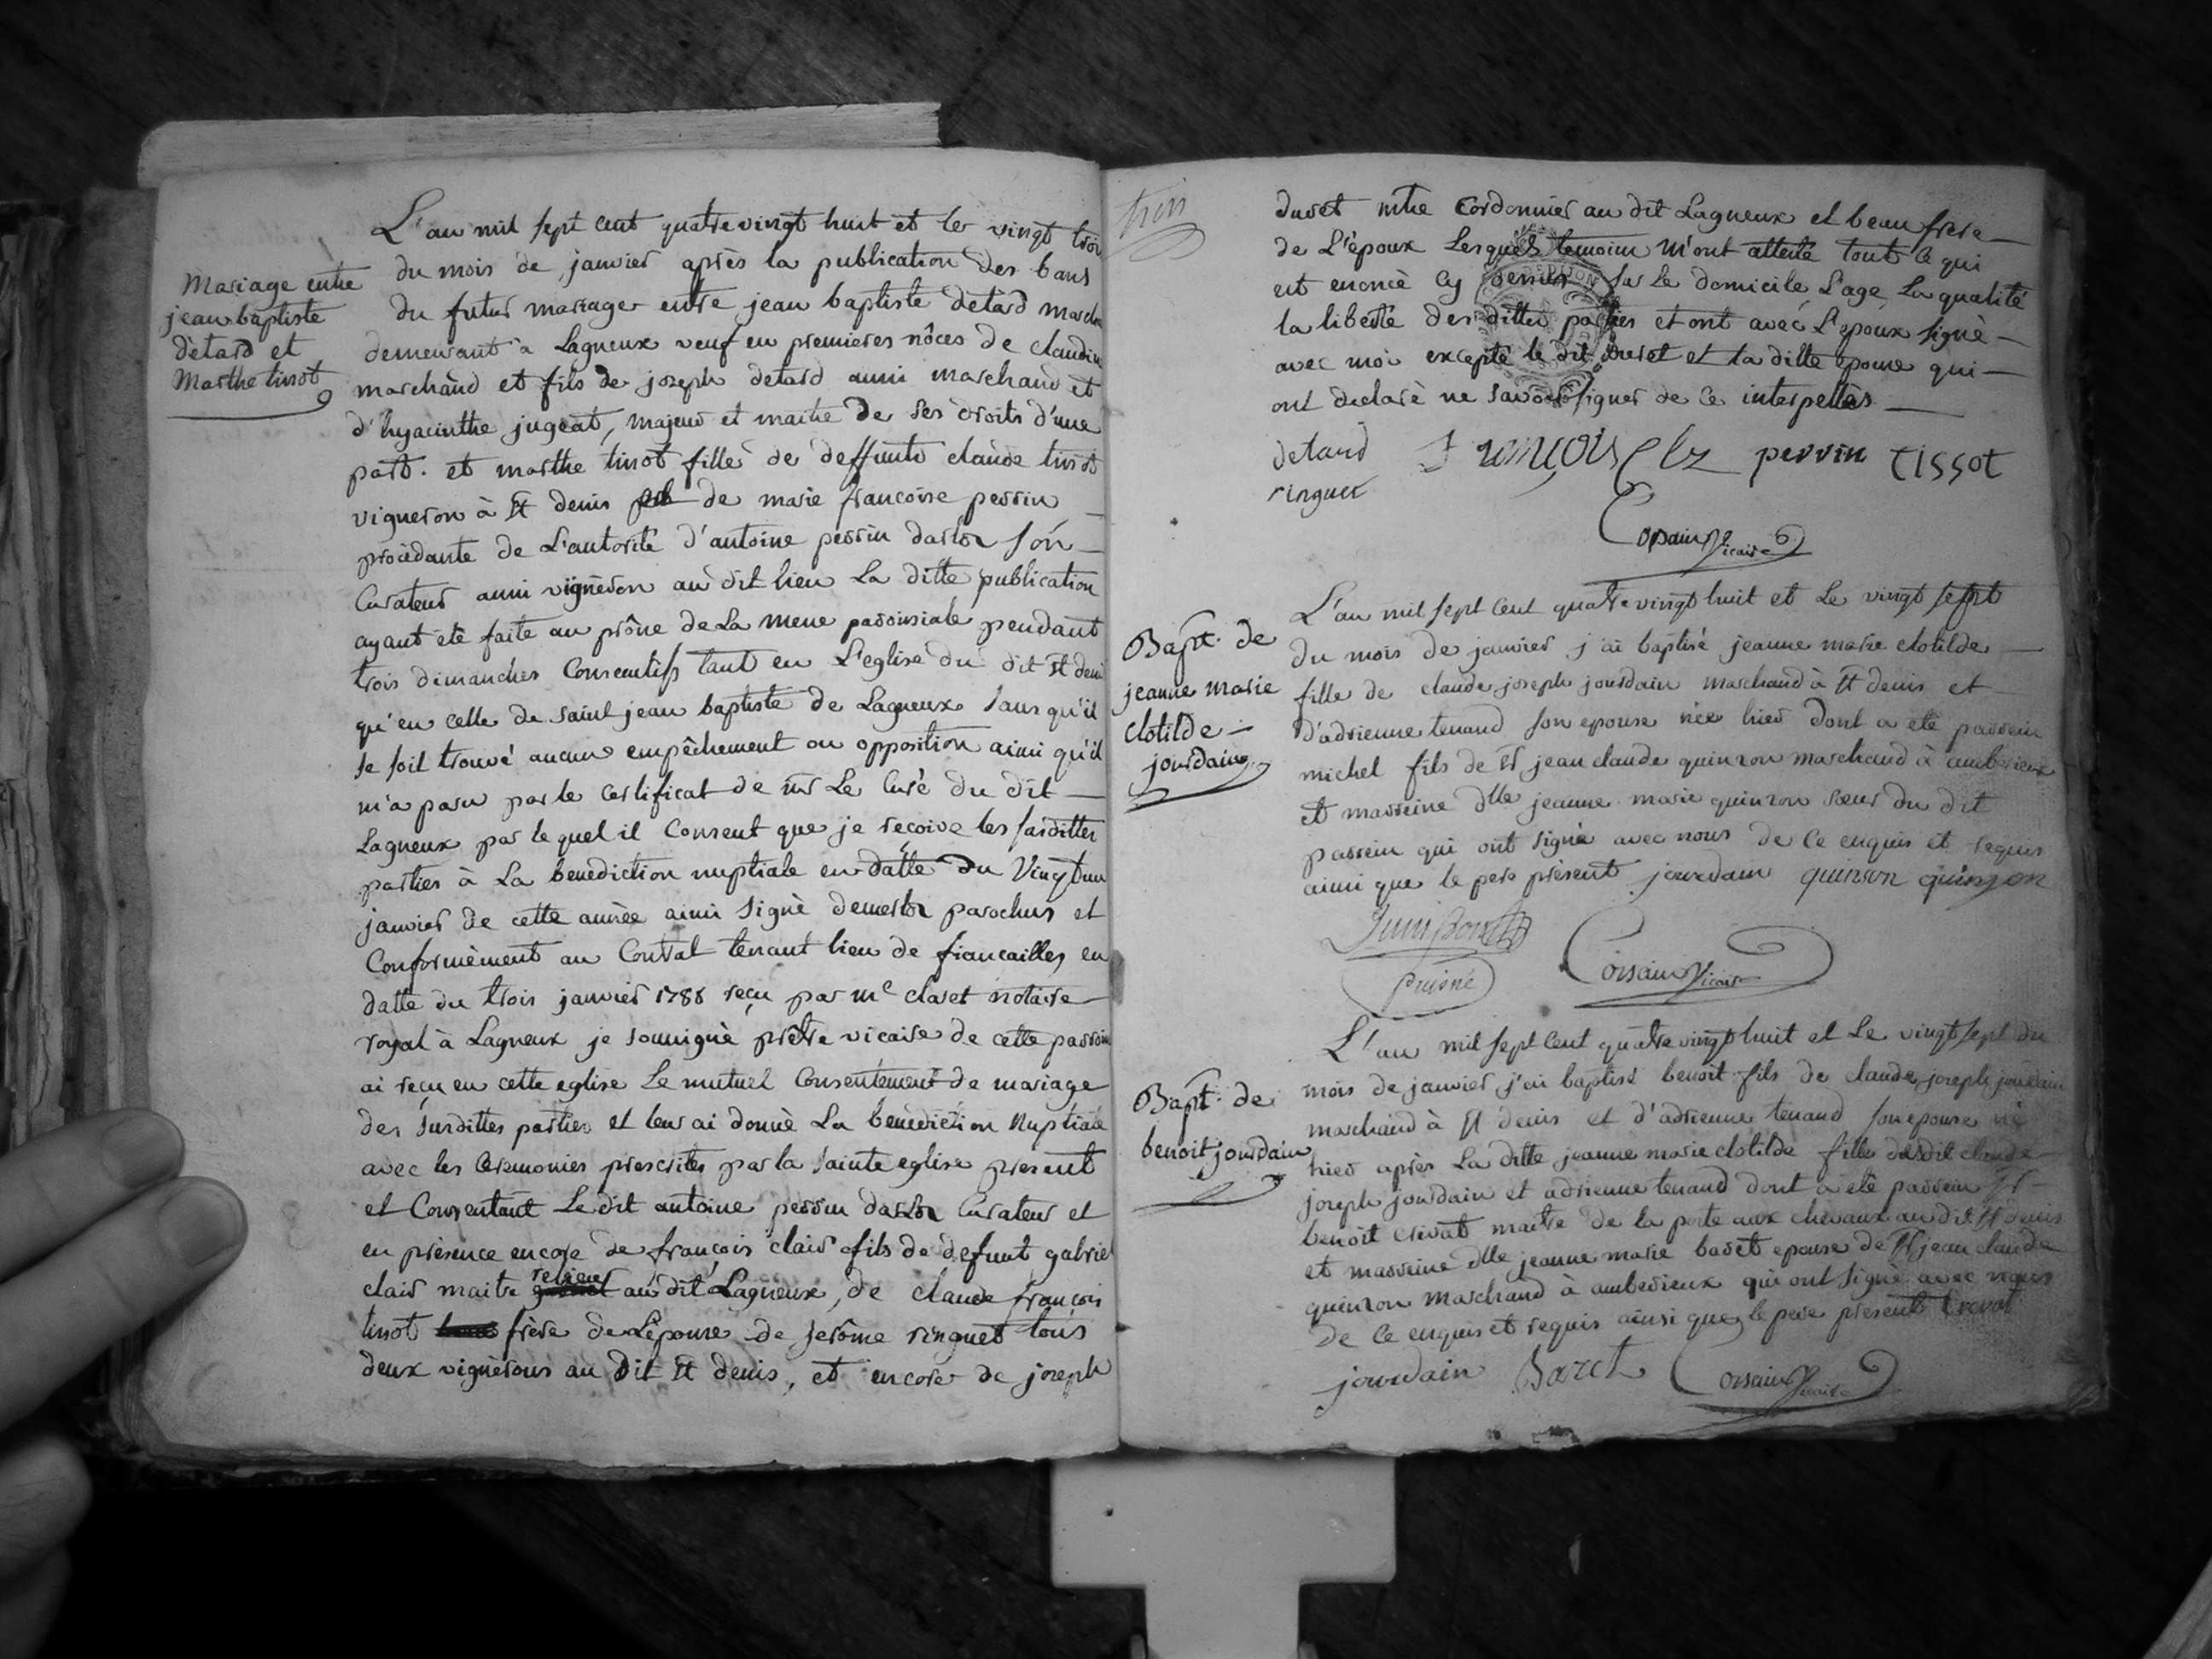 Mariage entre
jean baptiste
détard et
Marthe tissot
L'an mil sept cent quatre vingt huit et le vingt trois
du mois de janvier après la publication des bans
du futur mariage entre jean baptiste detard march
demeurant à Lagneux veuf en premieres nôces de claudine
marchand et fils de joseph detard aussi marchand et
d'hyacinthe jugeat, majeur et maitre de ses droits d'une
part. et marthe tissot fille de deffunts claude tissot
vigneron à St denis de marie françoise perrin
procèdante de L'autorité d'antoine perrin darlon son
Curateur aussi vigneron au dit lieu La ditte publication
ayant été faite au prône de La messe paroissiale pendant
trois dimanches Consecutifs tant en L'eglise du dit St denis
qu'en celle de saint jean baptiste de Lagneux sans qu'il
se soit trouvé aucun empêchement ou opposition ainsi qu'il
m'a paru par le certificat de mr Le Curé du dit
Lagneux par lequel il Consent que je reçoive les susdittes
parties à La benediction nuptiale en datte du Vingt un
janvier de cette année ainsi signè parochus et
Conformèment au Contrat tenant lieu de fiançailles en
datte du trois janvier 1788 reçu par me claret notaire
royal à Lagneux je soussigné prêtre vicaire de cette paroisse
ai reçu en cette eglise Le mutuel Consentement de mariage
des susdittes parties et leur ai donnè La benediction Nuptiale
avec les Ceremonies prescrites par la sainte eglise present
et Consentant Le dit antoine perrin darlon Curateur et
en prèsence encore de françois clair fils de defunt gabriel
clair maitre au dit Lagneux, de claude françois
tissot frère de L'epouse de jerôme ringuet tous
deux vignèrons au dit St denis, et encore de joseph
duret mtre Cordonnier au dit Lagneux et beau frere
de L'èpoux Lesquels temoins m'ont attesté tout ce qui
est enoncé cy dessus sur Le domicile L'age La qualité
la liberté des dittes parties et ont avec L'epoux signè
avec moi excepté le dit duret et la ditte epouse qui
ont declarè ne savoir signer de ce interpellès
detard françois cler perrin tissot
ringuet
Corsain Vicaire
Bapt. de
jeanne marie
Clotilde
jourdain
L'an mil sept Cent quatre vingt huit et Le vingt sept
du mois de janvier j'ai baptisé jeanne marie clotilde
fille de claude joseph jourdain marchand à St denis et
d'adrienne tenand son epouse née hier dont a été parrein
michel fils de Sr jean claude quinson marchand à amberieux
et marreine dlle jeanne marie quinson sœur du dit
parrein qui ont signé avec nous de ce enquis et requis
ainsi que le pere présent jourdain quinson quinson
puisné
Corsain Vicaire
Bapt. de
benoit jourdain
L'an mil sept Cent quatre vingt huit et Le vingt sept du
mois de janvier j'ai baptisé benoit fils de claude joseph jourdain
marchand à St denis et d'adrienne tenand son epouse né
hier après La ditte jeanne marie clotilde fille dudit claude
joseph jourdain et adrienne tenand dont a été parrein Sr
benoit crivat maitre de la poste aux chevaux au dit St denis
et marreine dlle jeanne marie baret epouse de Sr jean claude
quinson marchand à amberieux qui ont signé avec nous
de ce enquis et requis ainsi que le pere present
jourdain Baret Corsain Vicaire